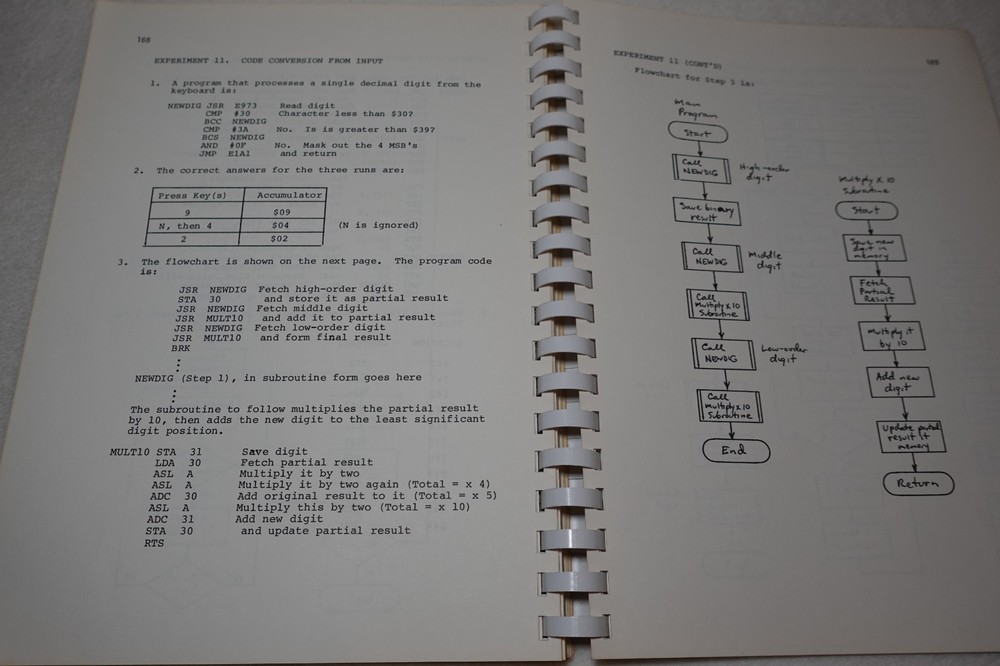 168
EXPERIMENT 11. CODE CONVERSION FROM INPUT
1. A program that processes a single decimal digit from the
keyboard is:
NEWDIG JSR E973 Read digit
CMP #30 Character less than $30?
BCC NEWDIG
CMP #3A No. Is is greater than $39?
BCS NEWDIG
AND #0F No. Mask out the 4 MSB's
JMP E1A1 and return
2. The correct answers for the three runs are:
Press Key(s) Accumulator
9 $09
N, then 4 $04 (N is ignored)
2 $02
3. The flowchart is shown on the next page. The program code
is:
JSR NEWDIG Fetch high-order digit
STA 30 and store it as partial result
JSR NEWDIG Fetch middle digit
JSR MULT10 and add it to partial result
JSR NEWDIG Fetch low-order digit
JSR MULT10 and form final result
BRK
NEWDIG (Step 1), in subroutine form goes here
The subroutine to follow multiplies the partial result
by 10, then adds the new digit to the least significant
digit position.
MULT10 STA 31 Save digit
LDA 30 Fetch partial result
ASL A Multiply it by two
ASL A Multiply it by two again (Total = x 4)
ADC 30 Add original result to it (Total = x 5)
ASL A Multiply this by two (Total = x 10)
ADC 31 Add new digit
STA 30 and update partial result
RTS
EXPERIMENT 11 (CONT'D)
Flowchart for Step 3 is:
Main
Program
Start
Call
NEWDIG
High-order
digit
Save binary
result
Call
NEWDIG
Middle
digit
Call
Multiply x 10
Subroutine
Call
NEWDIG
Low-order
digit
Call
Multiply x 10
Subroutine
End
Multiply x 10
Subroutine
Start
Save new
digit in
memory
Fetch
Partial
Result
Multiply it
by 10
Add new
digit
Update partial
result it
memory
Return